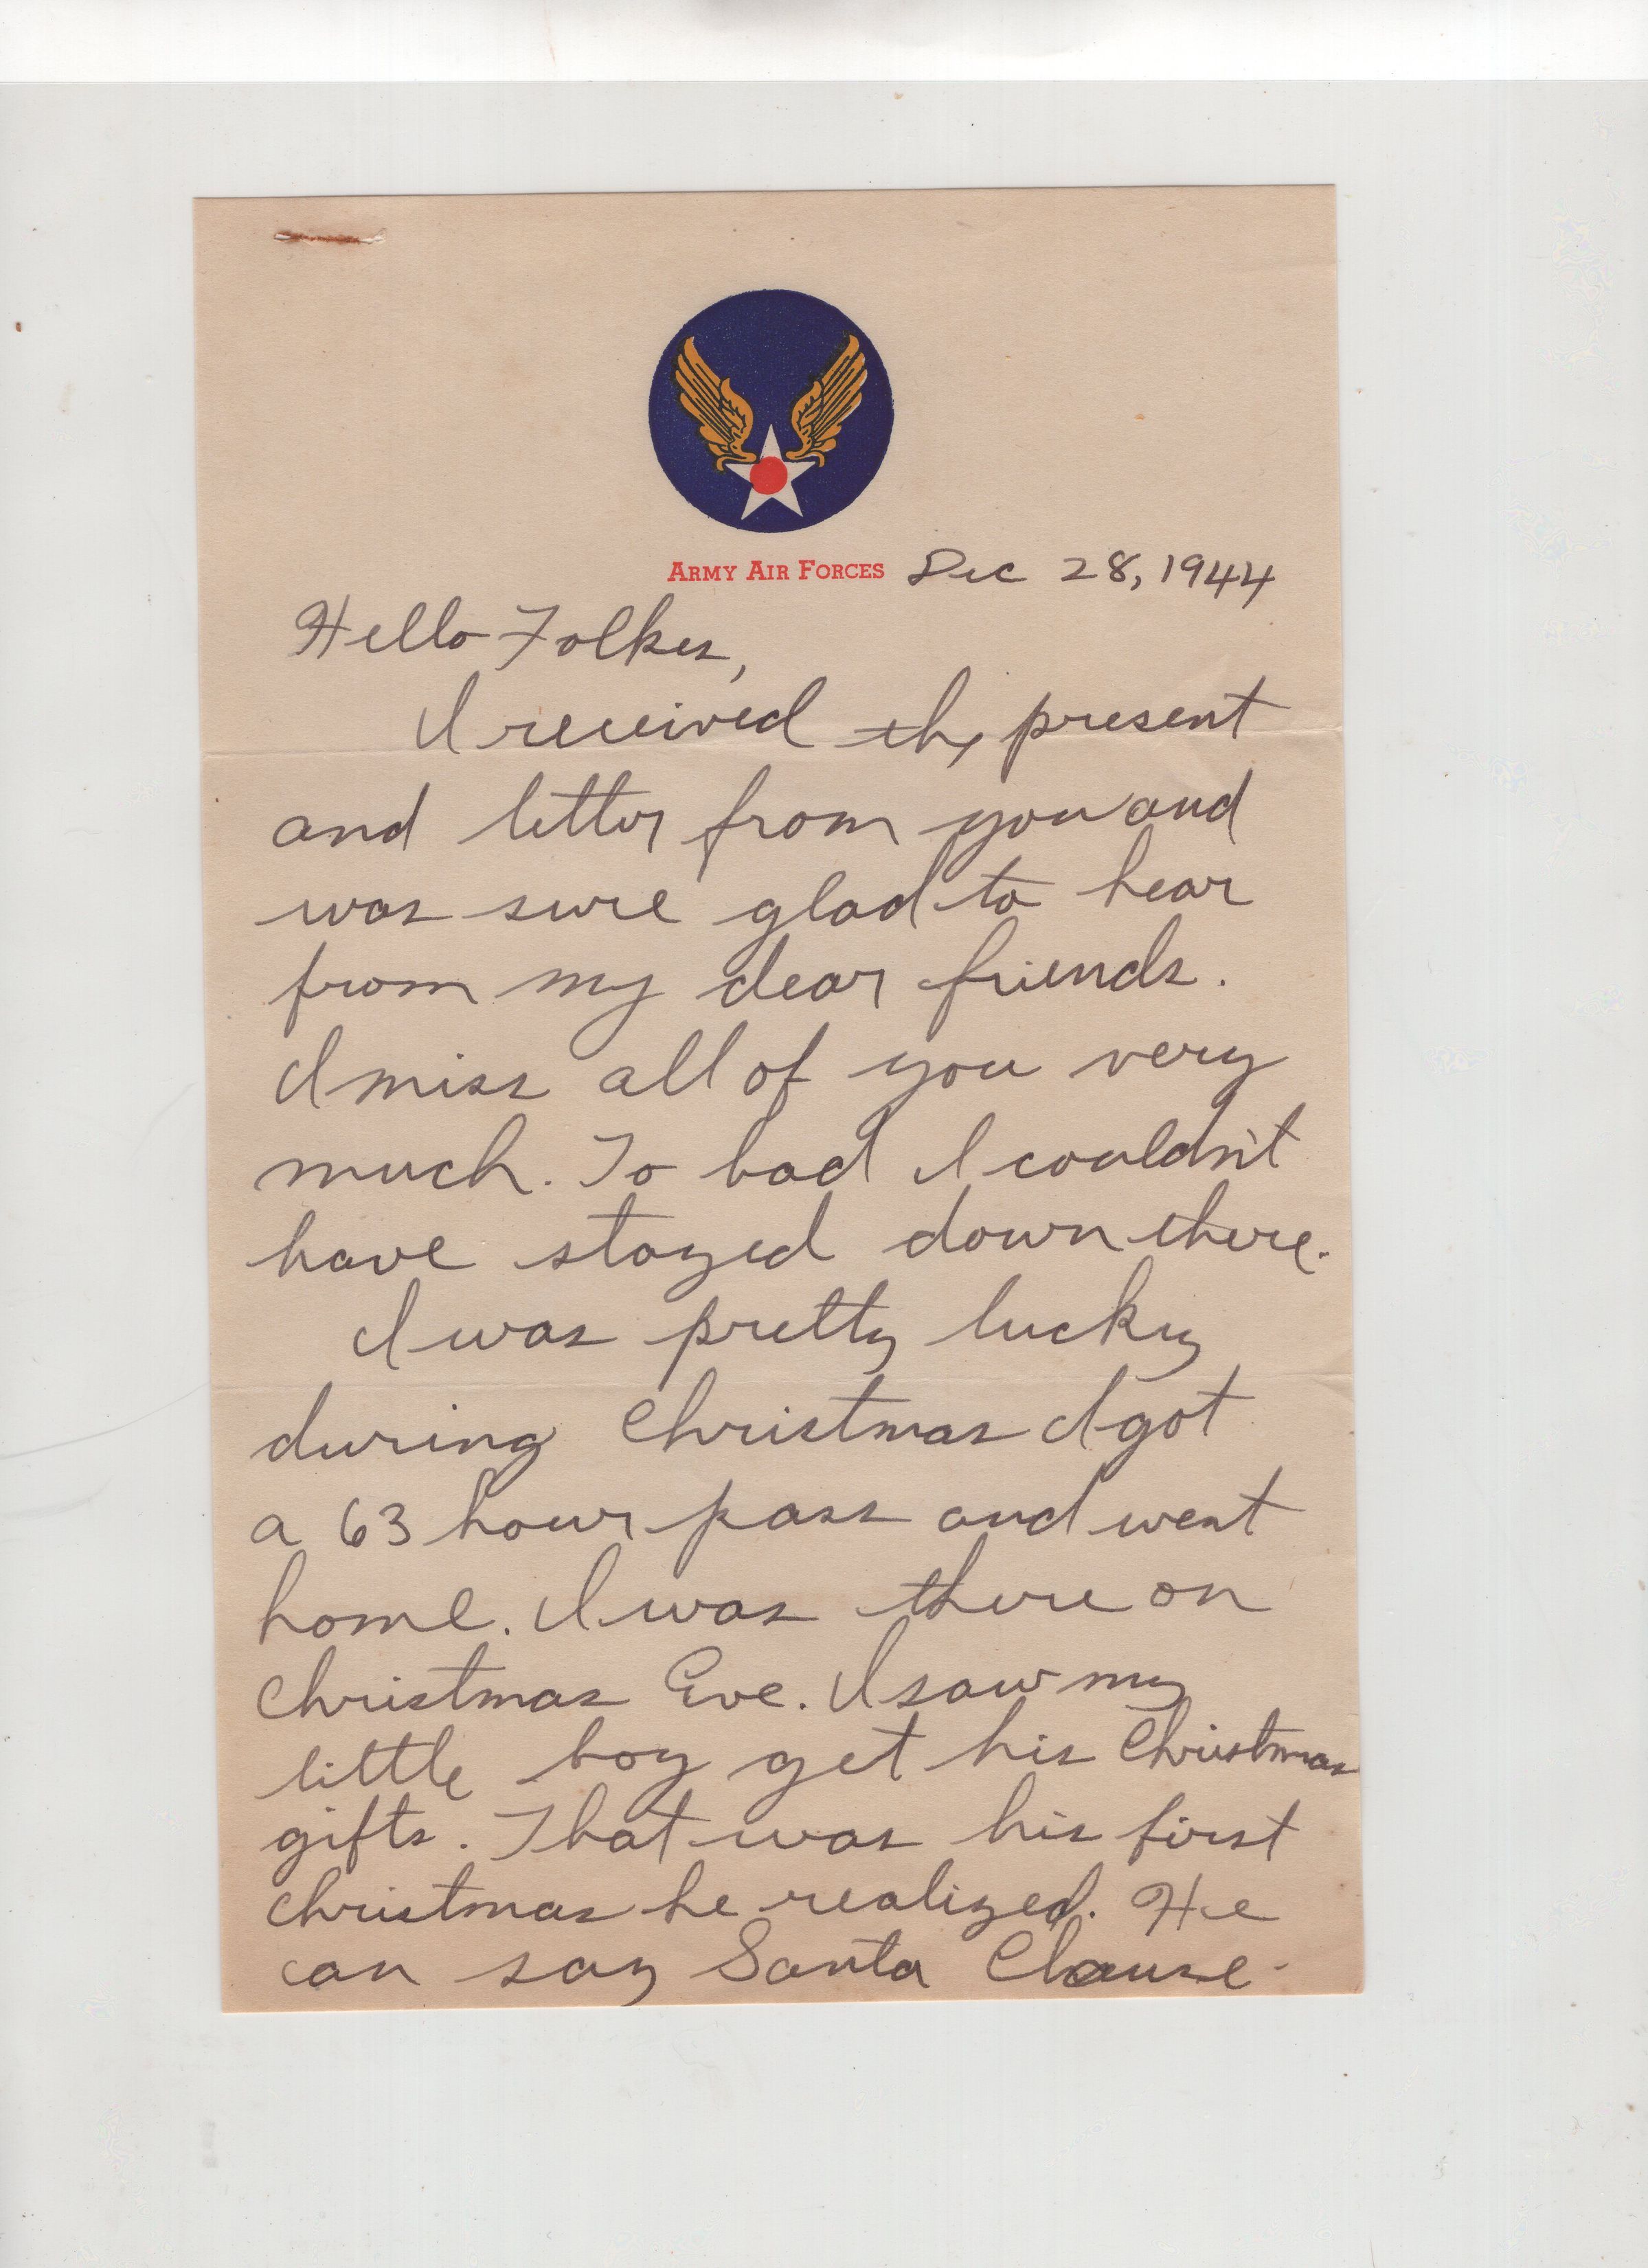 ARMY AIR FORCES Dec 28, 1944
Hello Folkes,
I received the present
and letter from you and
was sure glad to hear
from my dear friends.
I miss all of you very
much. To bad I couldn't
have stayed down there.
I was pretty lucky
during Christmas I got
a 63 hour pass and went
home. I was there on
Christmas Eve. I saw my
little boy get his Christmas
gifts. That was his first
christmas he realized. He
can say Santa Clause.